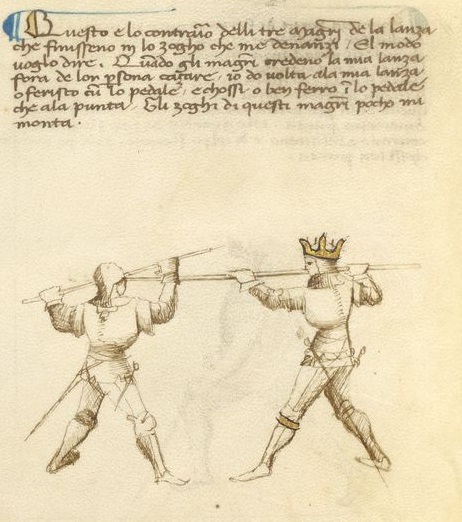 Questo e lo contrario delli tre Magri de la lanza
che finisseno in lo zogho che me denanzi / El modo
voglio dire. Quãdo gli magri credeno la mia lanza
fora de lor psona caçare, io do volta a la mia lanza
e ferisco cũ lo pedale, e chossi o ben ferro ĩ lo pedale
che a la punta. Gli zoghi di questi magri pocho mi
monta.